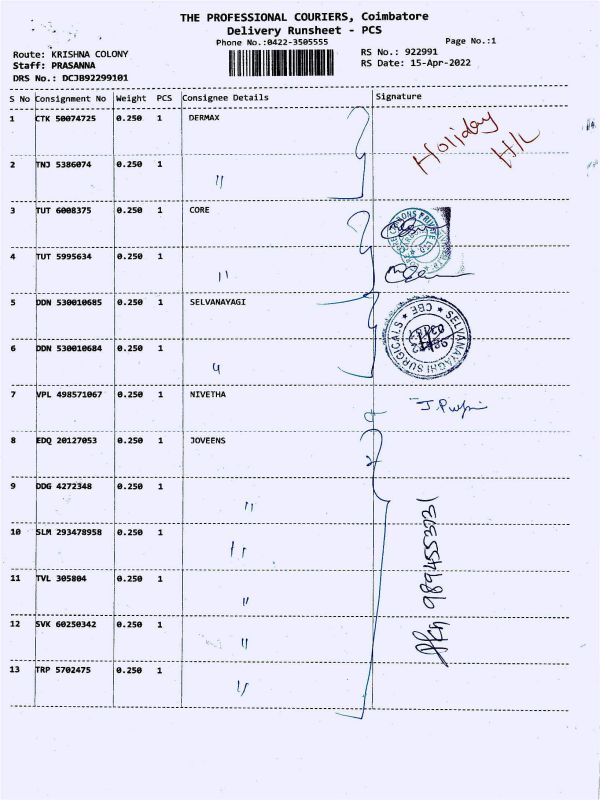 THE PROFESSIONAL COURIERS, Coimbatore
Delivery Runsheet - PCS
Phone No.:0422-3505555 Page No.:1
Route: KRISHNA COLONY RS No.: 922991
Staff: PRASANNA RS Date: 15-Apr-2022
DRS No.: DCJB92299101
S No Consignment No Weight PCS Consignee Details Signature
1 CTK 50074725 0.250 1 DERMAX Holiday H/L
2 TNJ 5386074 0.250 1 "
3 TUT 6008375 0.250 1 CORE
4 TUT 5995634 0.250 1 "
5 DDN 530010685 0.250 1 SELVANAYAGI
SELVANAYAGHI SURGICALS ★ CBE ★
6 DDN 530010684 0.250 1 "
7 VPL 498571067 0.250 1 NIVETHA
8 EDQ 20127053 0.250 1 JOVEENS
9 DDG 4272348 0.250 1 "
10 SLM 293478958 0.250 1 "
11 TVL 305804 0.250 1 "
12 SVK 60250342 0.250 1 "
13 TRP 5702475 0.250 1 "